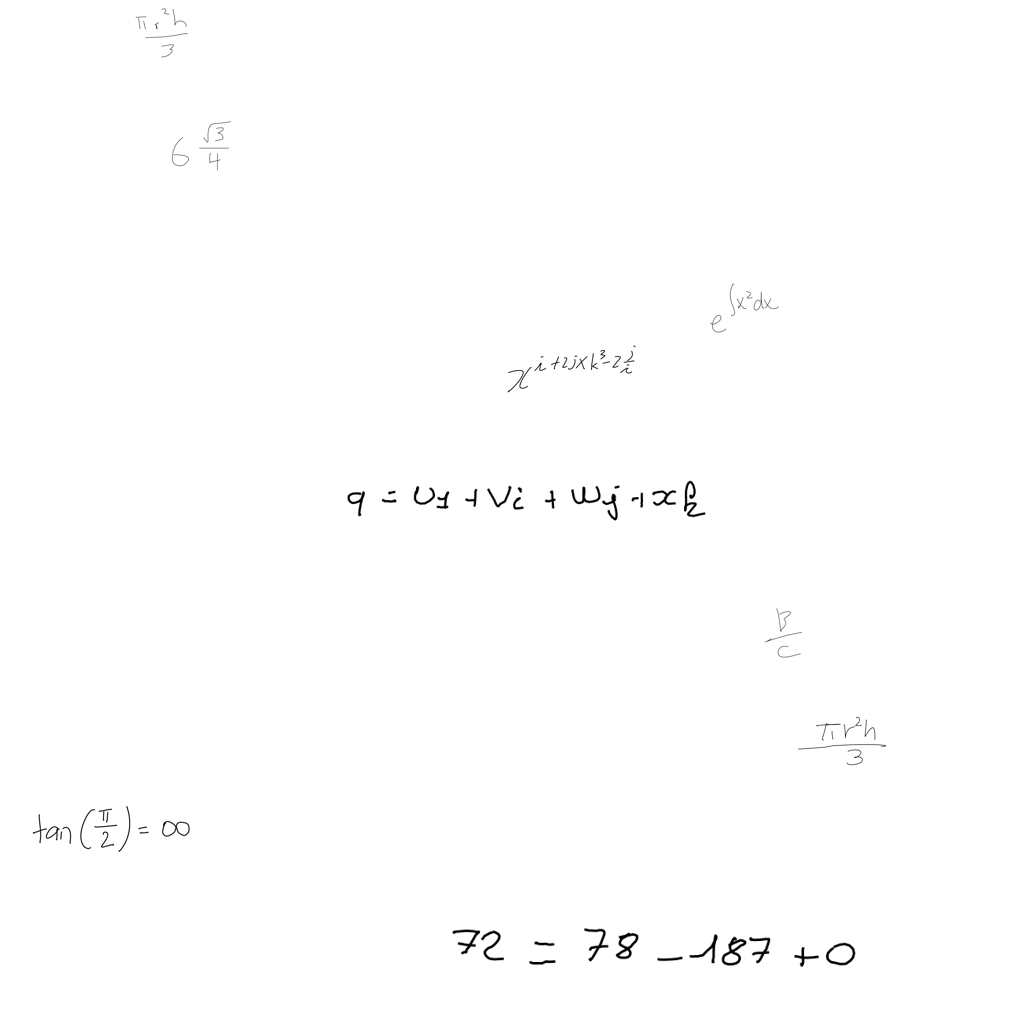 \frac{\pi r^2 h}{3}
6 \frac{\sqrt{3}}{4}
e^{\int x^2 dx}
x^{i+2jxk^3-2\frac{j}{i}}
q = u1 + vi + wj + xk
\frac{B}{C}
\frac{\pi r^2 h}{3}
tan(\frac{\pi}{2}) = \infty
72 = 78 - 187 + 0